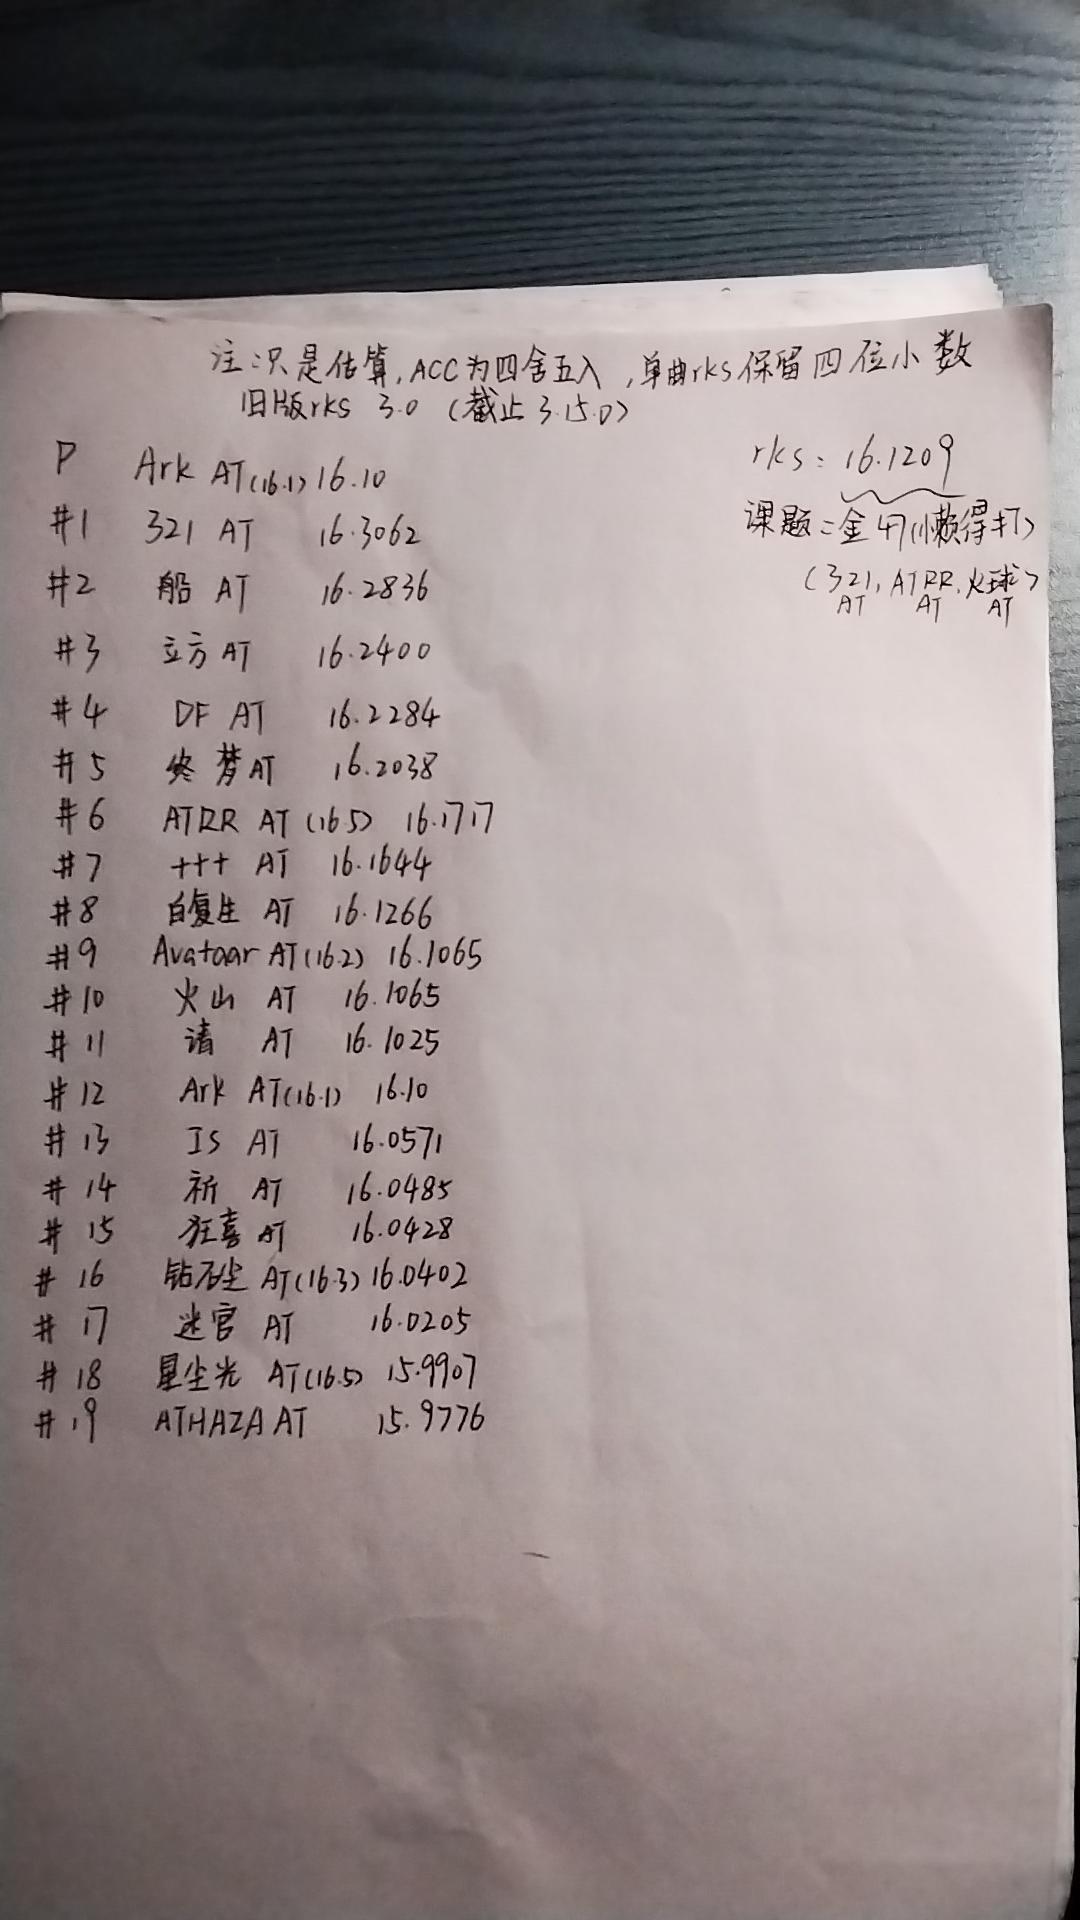 注:只是估算,ACC为四舍五入,单曲rks保留四位小数
旧版rks 3.0 (截止3.15.0)
P Ark AT(16.1) 16.10
rks: 16.1209
#1 321 AT 16.3062
课题=金47(懒得打)
#2 船 AT 16.2836
(321, ATRR, 火球)
AT AT AT
#3 立方 AT 16.2400
#4 DF AT 16.2284
#5 终梦 AT 16.2038
#6 ATRR AT (16.5) 16.1717
#7 +++ AT 16.1644
#8 白复生 AT 16.1266
#9 Avataar AT(16.2) 16.1065
#10 火山 AT 16.1065
#11 请 AT 16.1025
#12 Ark AT(16.1) 16.10
#13 IS AT 16.0571
#14 祈 AT 16.0485
#15 狂喜 AT 16.0428
#16 钻石尘 AT(16.3) 16.0402
#17 迷宫 AT 16.0205
#18 星尘光 AT(16.5) 15.9907
#19 ATHAZA AT 15.9776